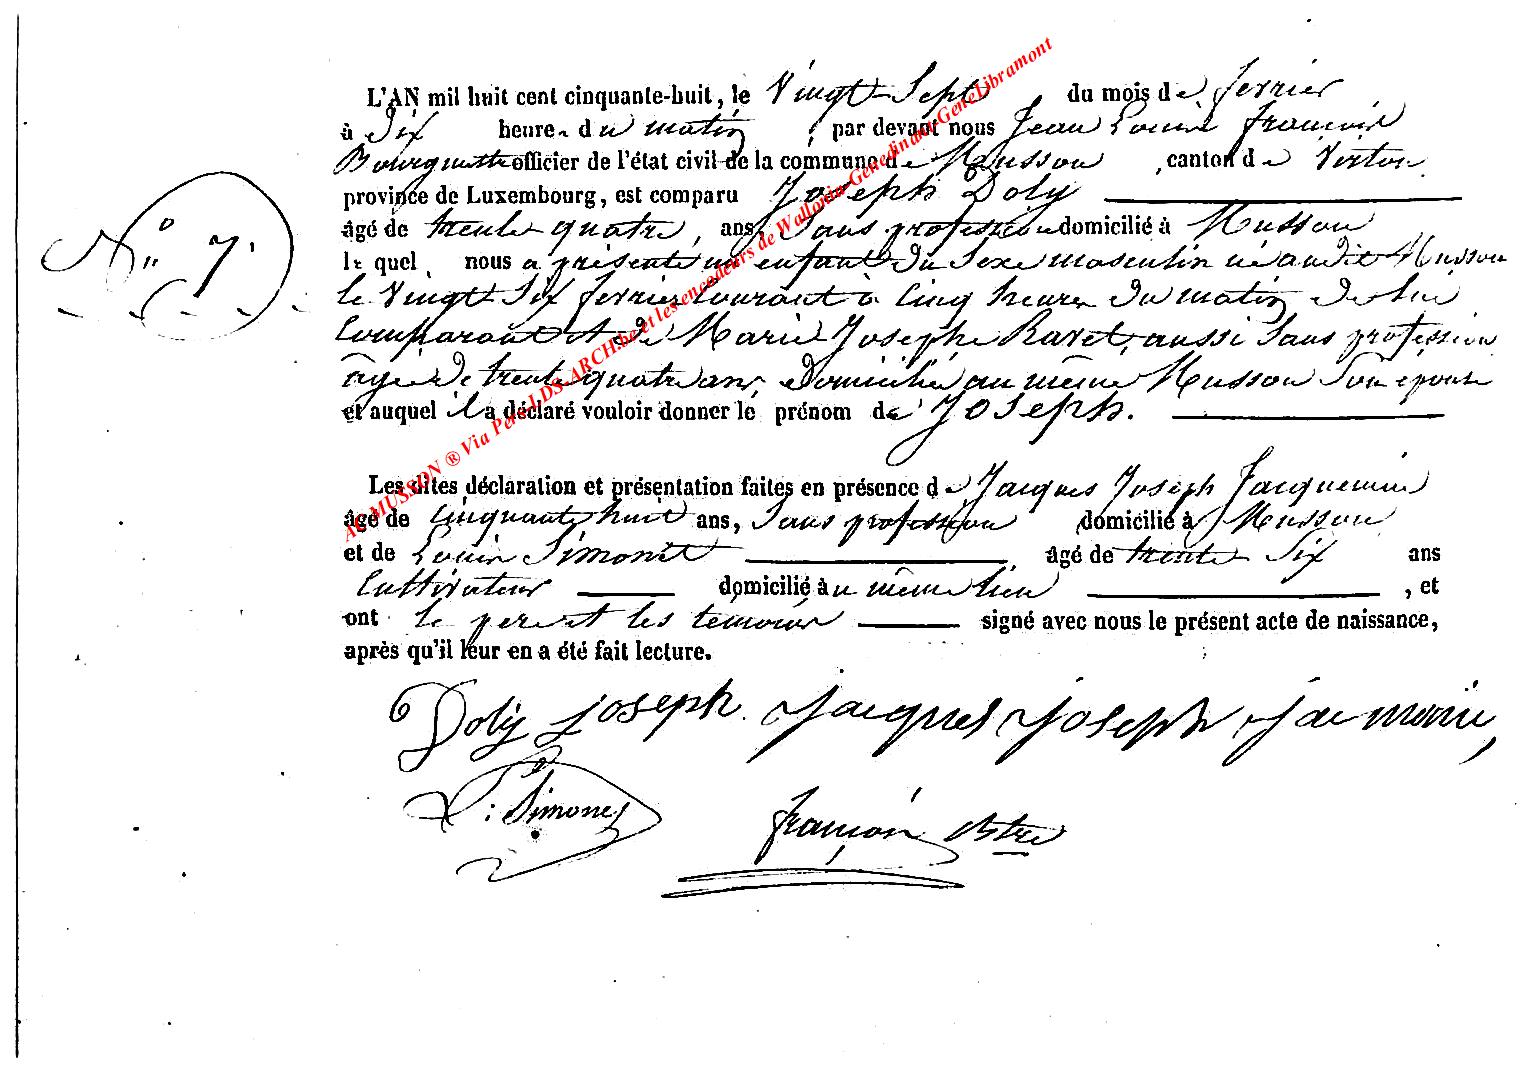 L'AN mil huit cent cinquante-huit, le Vingt-Sept du mois de fevrier
à Six heures du matin, par devant nous Jean Louis François
officier de l'état civil de la commune de Musson, canton de Virton
province de Luxembourg, est comparu Joseph Doly
N° 7.
âgé de trente quatre, ans, Sans profession domicilié à Musson
le quel, nous a présenté un enfant du Sexe masculin né audit Musson
le Vingt Six fevrier courant à Cinq heures du matin de lui
Comparant et de Marie Josephe Ravet, aussi Sans profession
âgée de trente quatre ans, domiciliée au même Musson Son epouse
et auquel il a déclaré vouloir donner le prénom de Joseph.
Les dites déclaration et présentation faites en présence de Jacques Joseph Jacquemin
âgé de Cinquante huit ans, Sans profession domicilié à Musson
et de Louis Simonet âgé de trente Six ans
Cultivateur domicilié au même lieu, et
ont le pere et les temoins signé avec nous le présent acte de naissance,
après qu'il leur en a été fait lecture.
Doly joseph. Jacques Joseph Jacmain,
Simonet
françois
AC MUSSON ® Via Pers LDS-ARCH.be et les encodeurs de Wallonia-Genedinant-GeneLibramont